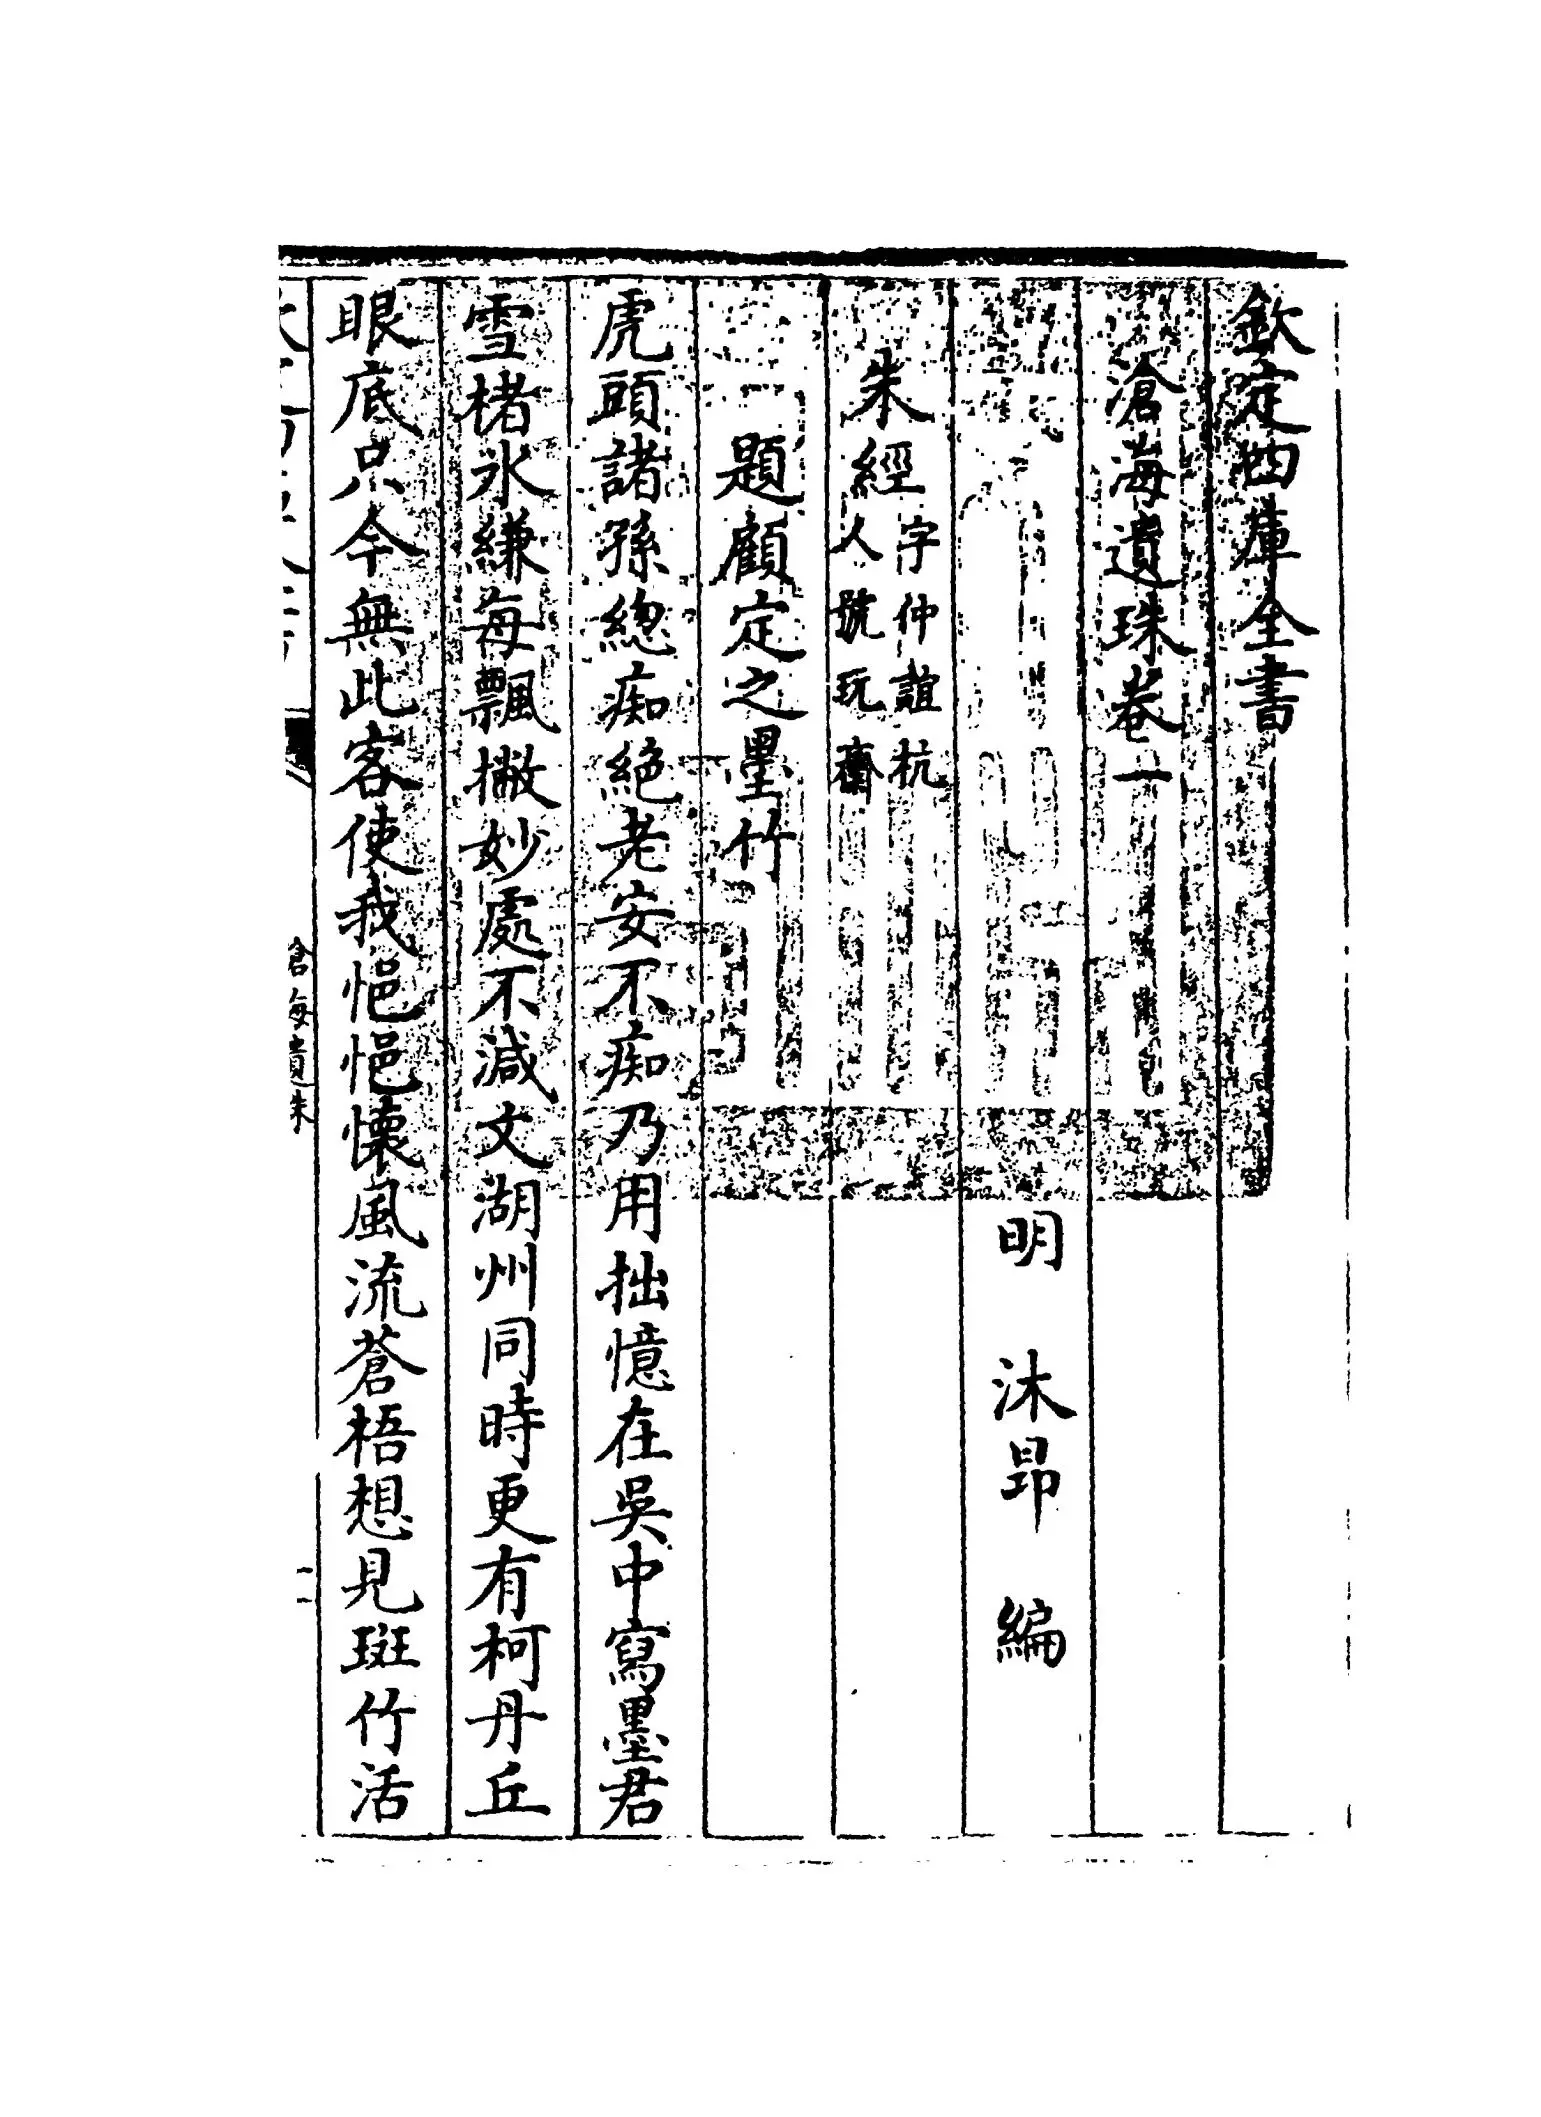 欽定四庫全書
滄海遺珠卷一
明　沐昂　編
朱經字仲誼杭
人號玩齋
題顧定之墨竹
虎頭諸孫總痴絕老安不痴乃用拙憶在吳中寫墨君
雪楮氷縑每飄撇妙處不減文湖州同時更有柯丹丘
眼底只今無此客使我悒悒懷風流蒼梧想見斑竹活
滄海遺珠
一